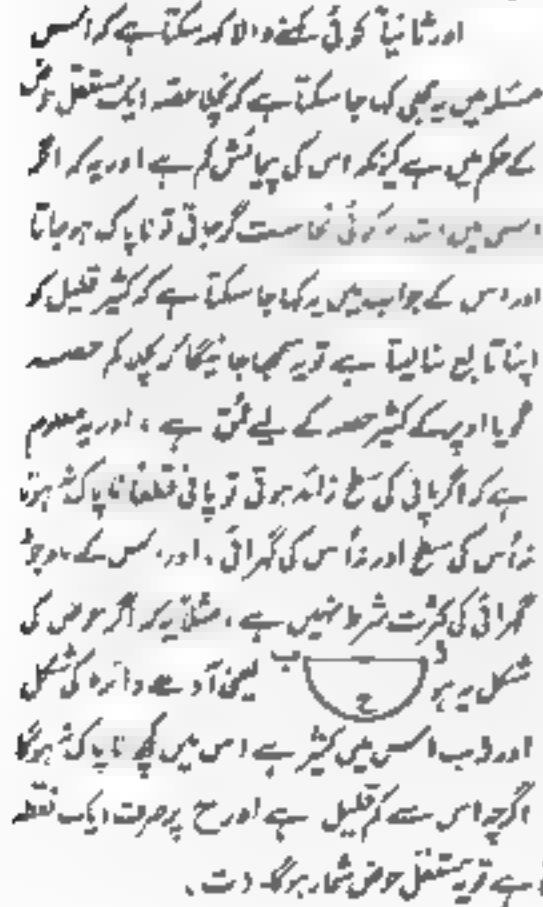 اور ثانیاً کوئی کہنے والا کہہ سکتا ہے کہ اس
مسئلہ میں یہ بھی کہا جا سکتا ہے کہ نچلا حصہ ایک مستقل حوض
کے حکم میں ہے کیونکہ اس کی پیمائش کم ہے اور یہ کہ اگر
اس میں ابتداءً کوئی نجاست گر جاتی تو ناپاک ہو جاتا
اور اس کے جواب میں یہ کہا جا سکتا ہے کہ کثیر قلیل کو
اپنا تابع بنا لیتا ہے تو یہ سمجھا جائیگا کہ نچلا کم حصہ
گویا اوپر کے کثیر حصہ کے لیے عمق ہے ، اور یہ معلوم
ہے کہ اگر پانی کی سطح زائد ہوتی تو پانی قطعاً ناپاک نہ ہوتا
نہ اُس کی سطح اور نہ اُس کی گہرائی ، اور اس کے باوجود
گہرائی کی کثرت شرط نہیں ہے ، مثلاً یہ کہ اگر حوض کی
شکل یہ ہو ء ب ح یعنی آدھے دائرہ کی شکل
اور ء ب اس میں کثیر ہے اس میں کچھ ناپاک نہ ہوگا
اگرچہ اس سے کم قلیل ہے اور ح پر صرف ایک نقطہ
ہے تو یہ مستقل حوض شمار ہوگا۔ دت ۔